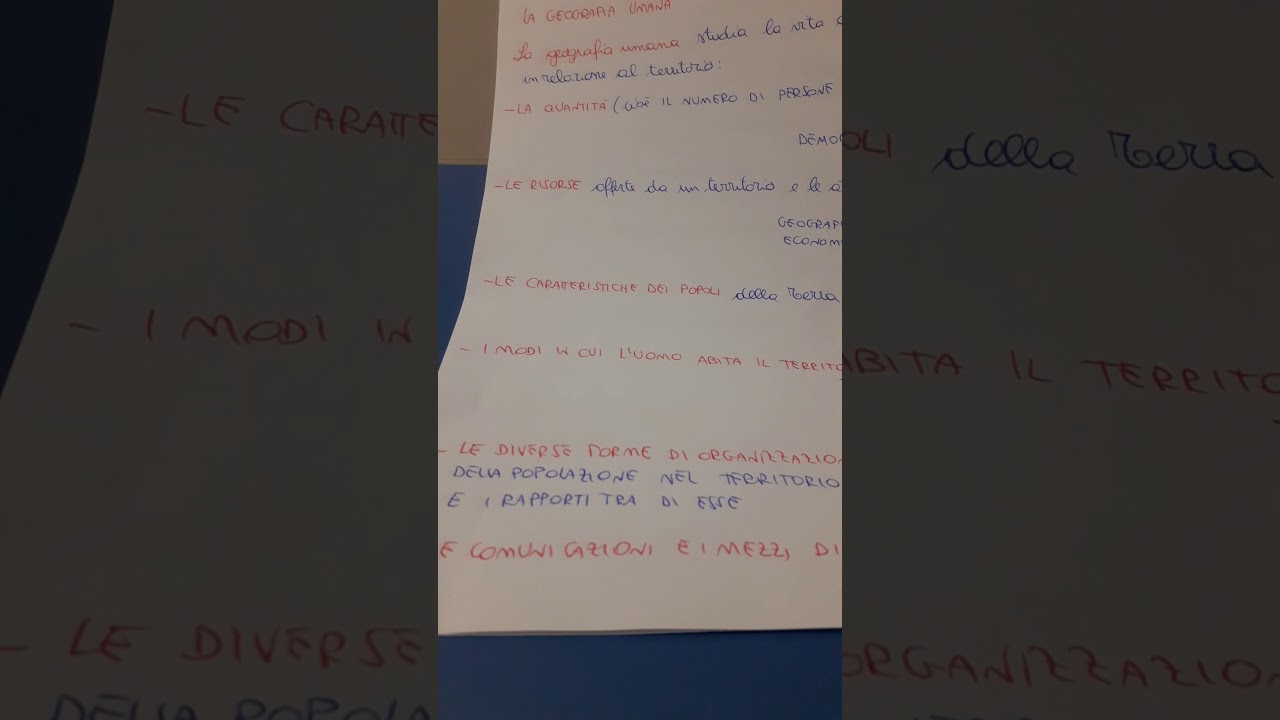 LA GEOGRAFIA UMANA
La geografia umana studia la vita
in relazione al territorio:
-LA QUANTITÀ (cioè IL NUMERO DI PERSONE
DEMO
-LE RISORSE offerte da un territorio e le
GEOGRAF
ECONOM
-LE CARATTERISTICHE DEI POPOLI della Terra
- I MODI IN CUI L'UOMO ABITA IL TERRITO
- LE DIVERSE FORME DI ORGANIZZAZION
DELLA POPOLAZIONE NEL TERRITORIO
E I RAPPORTI TRA DI ESSE
E COMUNICAZIONI E I MEZZI DI